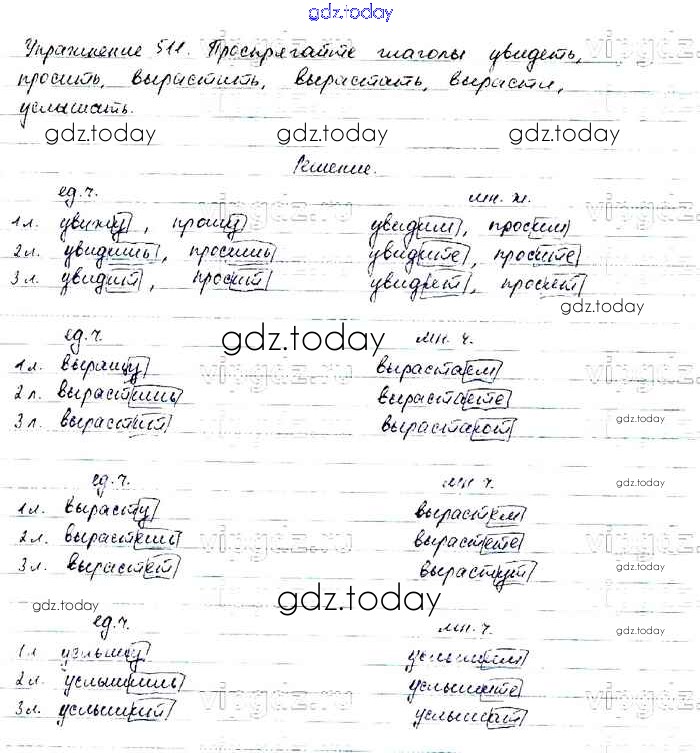 gdz.today
Упражнение 511. Проспрягайте глаголы увидеть,
просить, вырастить, вырастать, вырасти,
услышать.
gdz.today gdz.today gdz.today
Решение.
ед.ч. мн. ч.
1 л. увижу, прошу увидим, просим
2 л. увидишь, просишь увидите, просите
3 л. увидит, просит увидят, просят
gdz.today
ед.ч. gdz.today мн. ч.
1 л. выращу вырастаем
2 л. вырастишь вырастаете
3 л. вырастит вырастают
gdz.today
ед.ч. мн ч. gdz.today
1 л. вырасту вырастем
2 л. вырастешь вырастете
3 л. вырастет вырастут
gdz.today
gdz.today gdz.today
ед.ч. мн. ч. gdz.today
1 л услышу услышим
2 л. услышишь услышите
3 л. услышит услышат
gdz.today